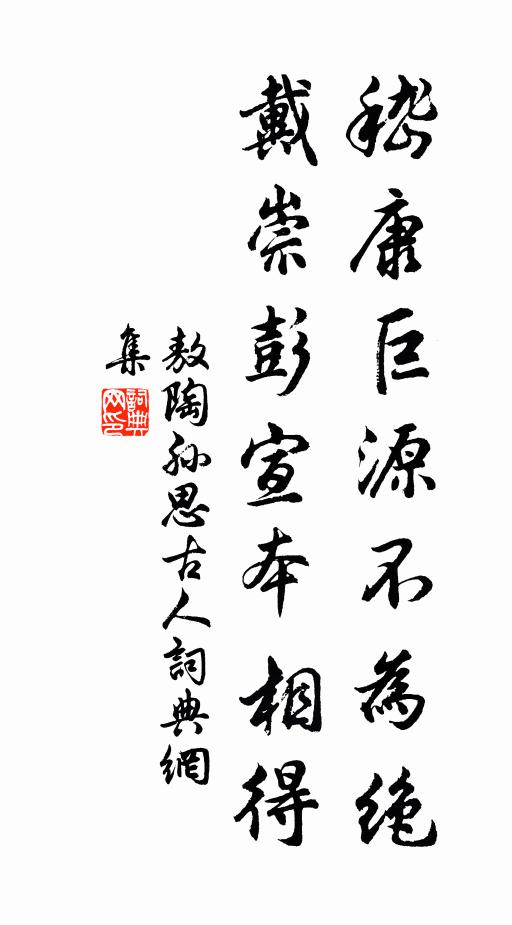 嵇康巨源不為絕
戴崇彭宣本相得
敖陶孫思古人詞典網
集
詞典
网印